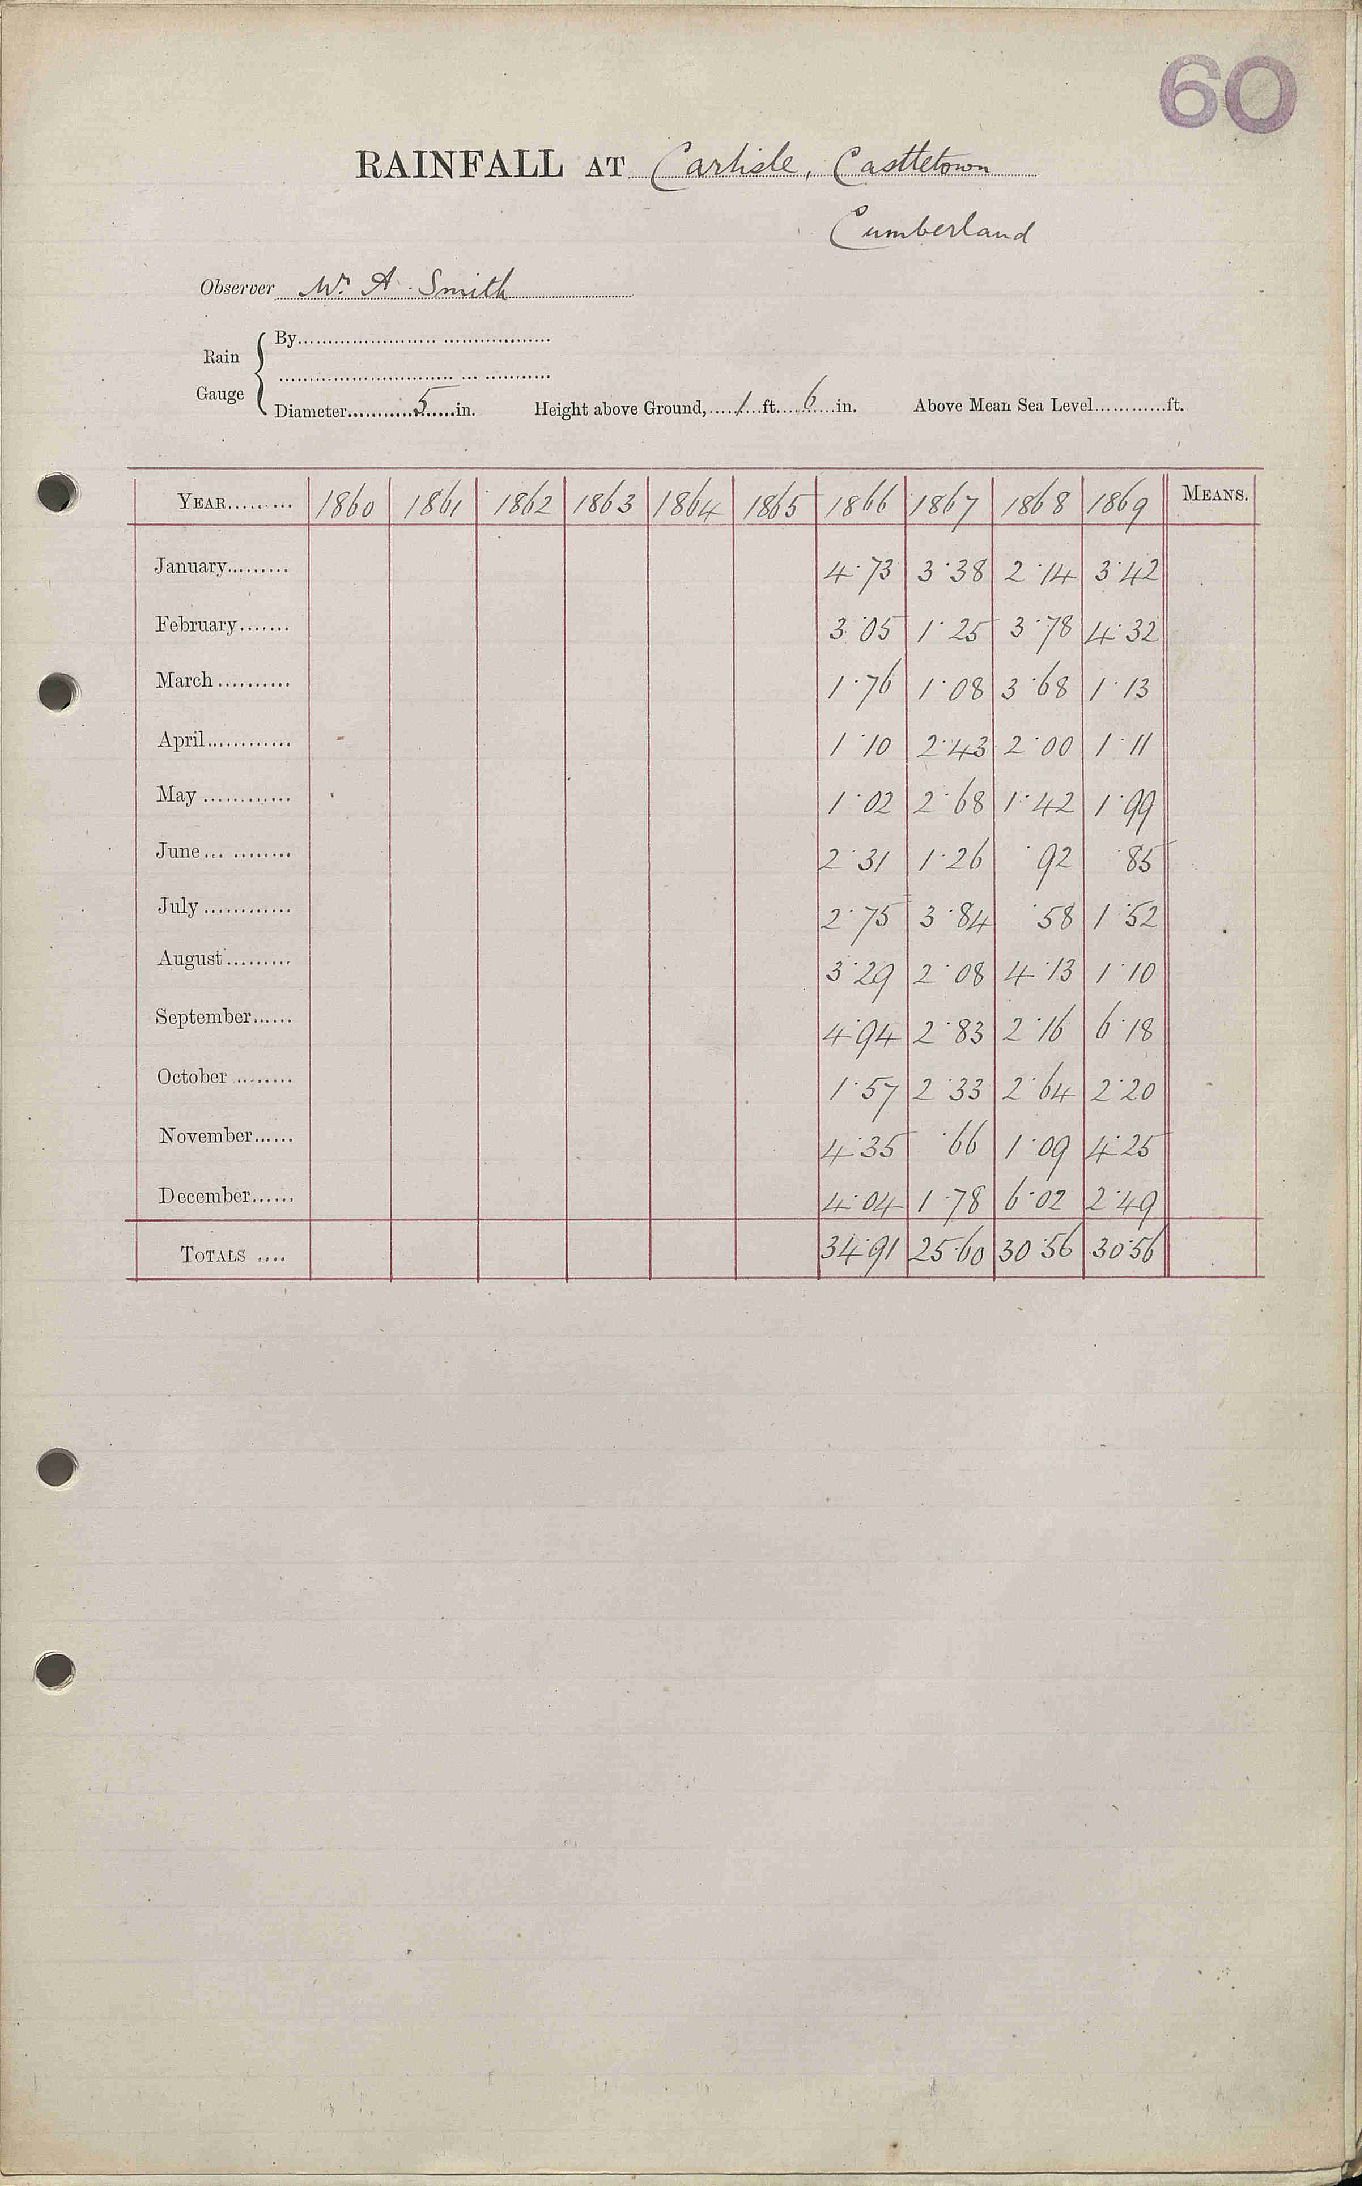 60
RAINFALL AT Carlisle, Castletown
Cumberland
Observer Mr. A. Smith
Rain Gauge { By
Diameter 5 in. Height above Ground, 1 ft. 6 in. Above Mean Sea Level ft.
YEAR 1860 1861 1862 1863 1864 1865 1866 1867 1868 1869 MEANS.
January 4.73 3.38 2.14 3.42
February 3.05 1.25 3.78 4.32
March 1.76 1.08 3.68 1.13
April 1.10 2.43 2.00 1.11
May 1.02 2.68 1.42 1.99
June 2.31 1.26 .92 .85
July 2.75 3.84 .58 1.52
August 3.29 2.08 4.13 1.10
September 4.94 2.83 2.16 6.18
October 1.57 2.33 2.64 2.20
November 4.35 .66 1.09 4.25
December 4.04 1.78 6.02 2.49
TOTALS 34.91 25.60 30.56 30.56